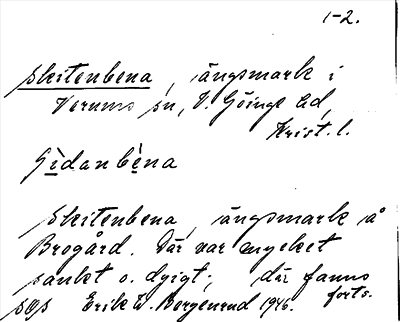 1-2.
Skitenbena, ängsmark i
Verums sn, V. Göinge hd,
Krist. l.
Gìdanbèna
Skitenbena, ängsmark å
Brogård. Där var mycket
sankt o. dyigt; där fanns
forts.
sgs Erik W. Bergenrud 1926.